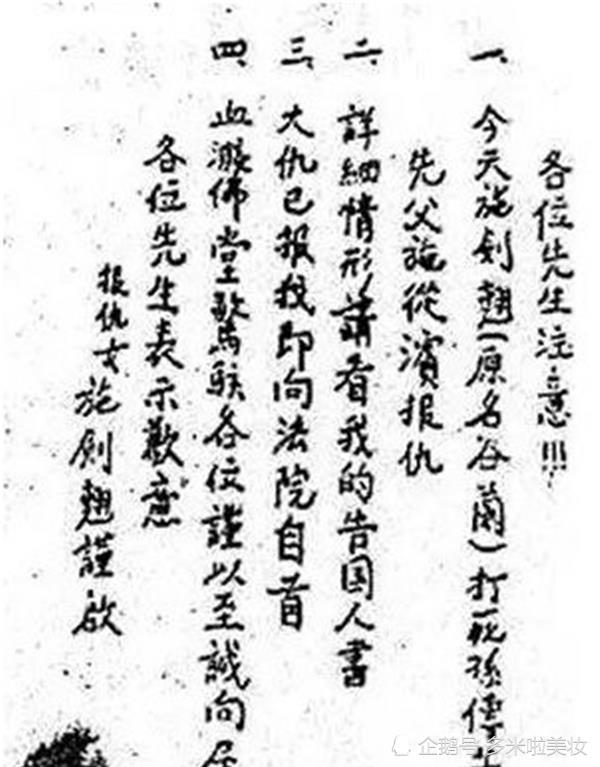 各位先生注意!!!
一、今天施剑翘(原名谷蘭)打死孫傳
先父施從濱报仇
二、詳細情形請看我的告国人書
三、大仇已报我即向法院自首
四、血濺佛堂驚駭各位謹以至誠向
各位先生表示歉意
报仇女 施剑翘謹啟
企鹅号 多米啦美妆